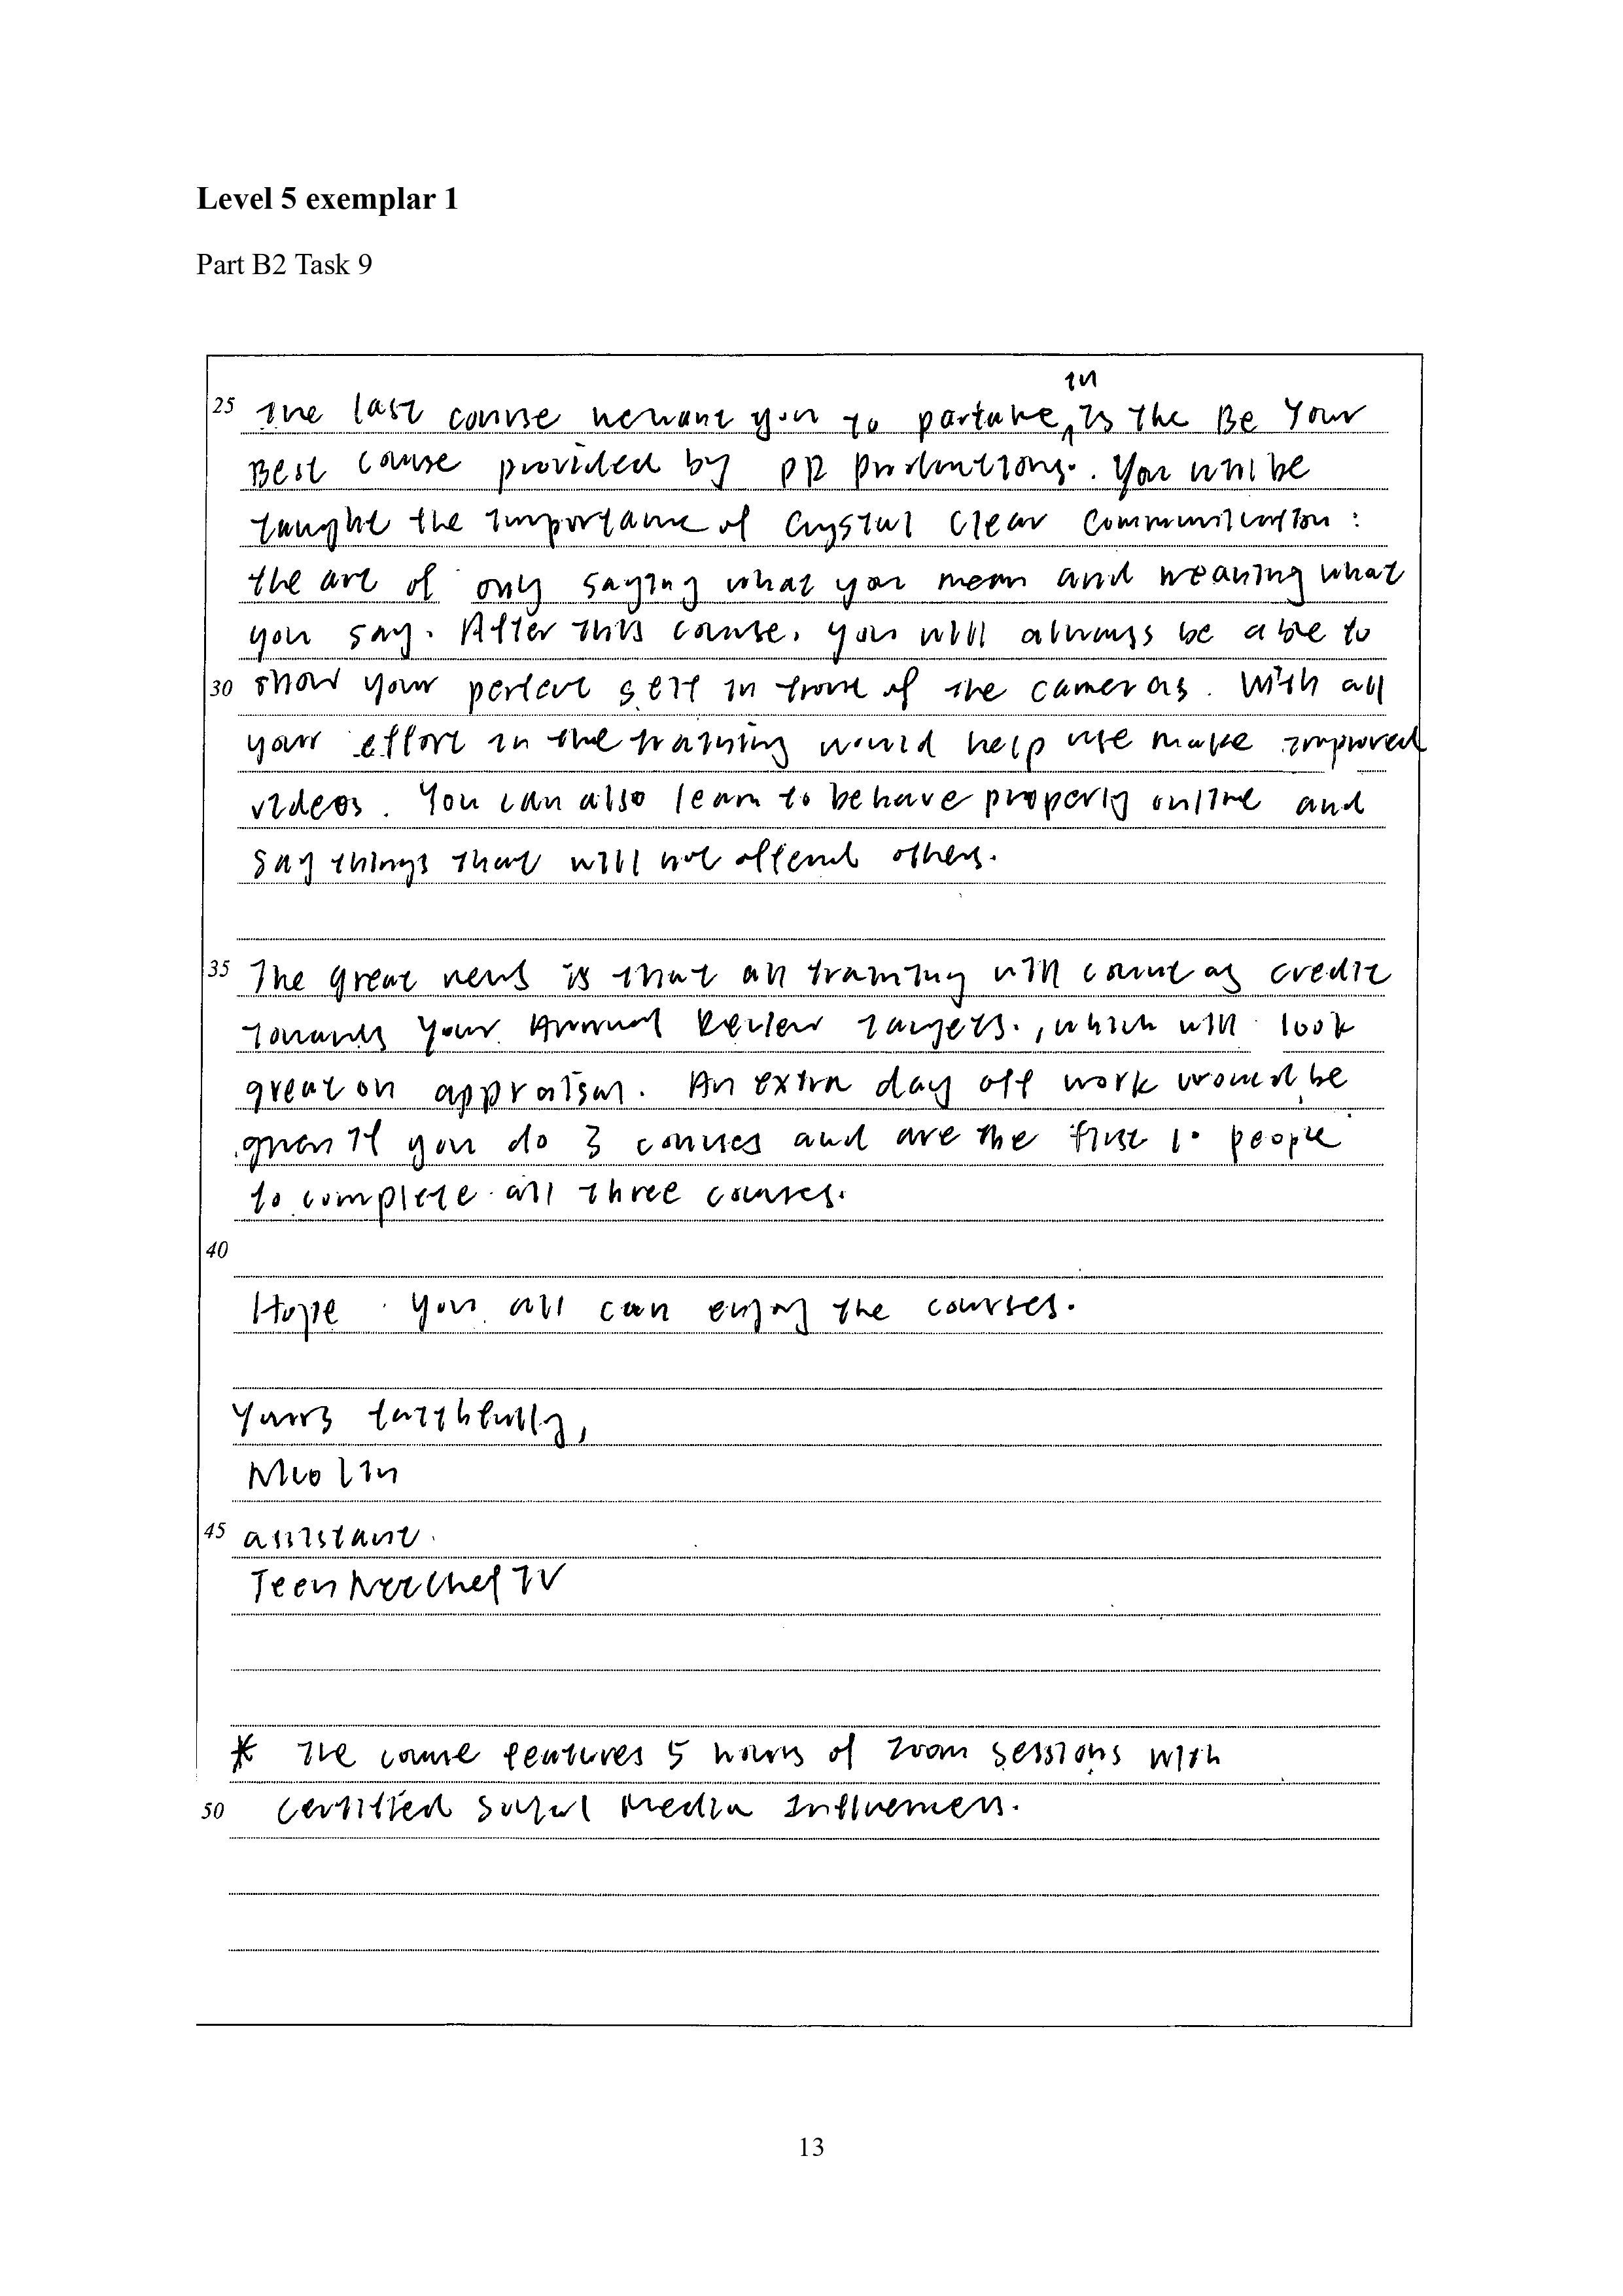 Level 5 exemplar 1
Part B2 Task 9
in
25 The last course we want you to partake ^ is the Be Your
Best course provided by PR Productions. You will be
taught the importance of Crystal Clear Communication :
the art of only saying what you mean and meaning what
you say. After this course, you will always be able to
30 show your perfect self in front of the cameras. With all
your effort in the training would help use make improved
videos. You can also learn to behave properly online and
say things that will not offend others.
35 The great news is that all training will count as credit
towards your Annual Review targets., which will look
great on appraisal. An extra day off work would be
given if you do 3 courses and are the first 10 people
to complete all three courses.
40
Hope you all can enjoy the courses.
Yours faithfully,
Lin
45 assistant.
Teen TV
* The course features 5 hours of zoom sessions with
50 certified Social Media Influencers.
13